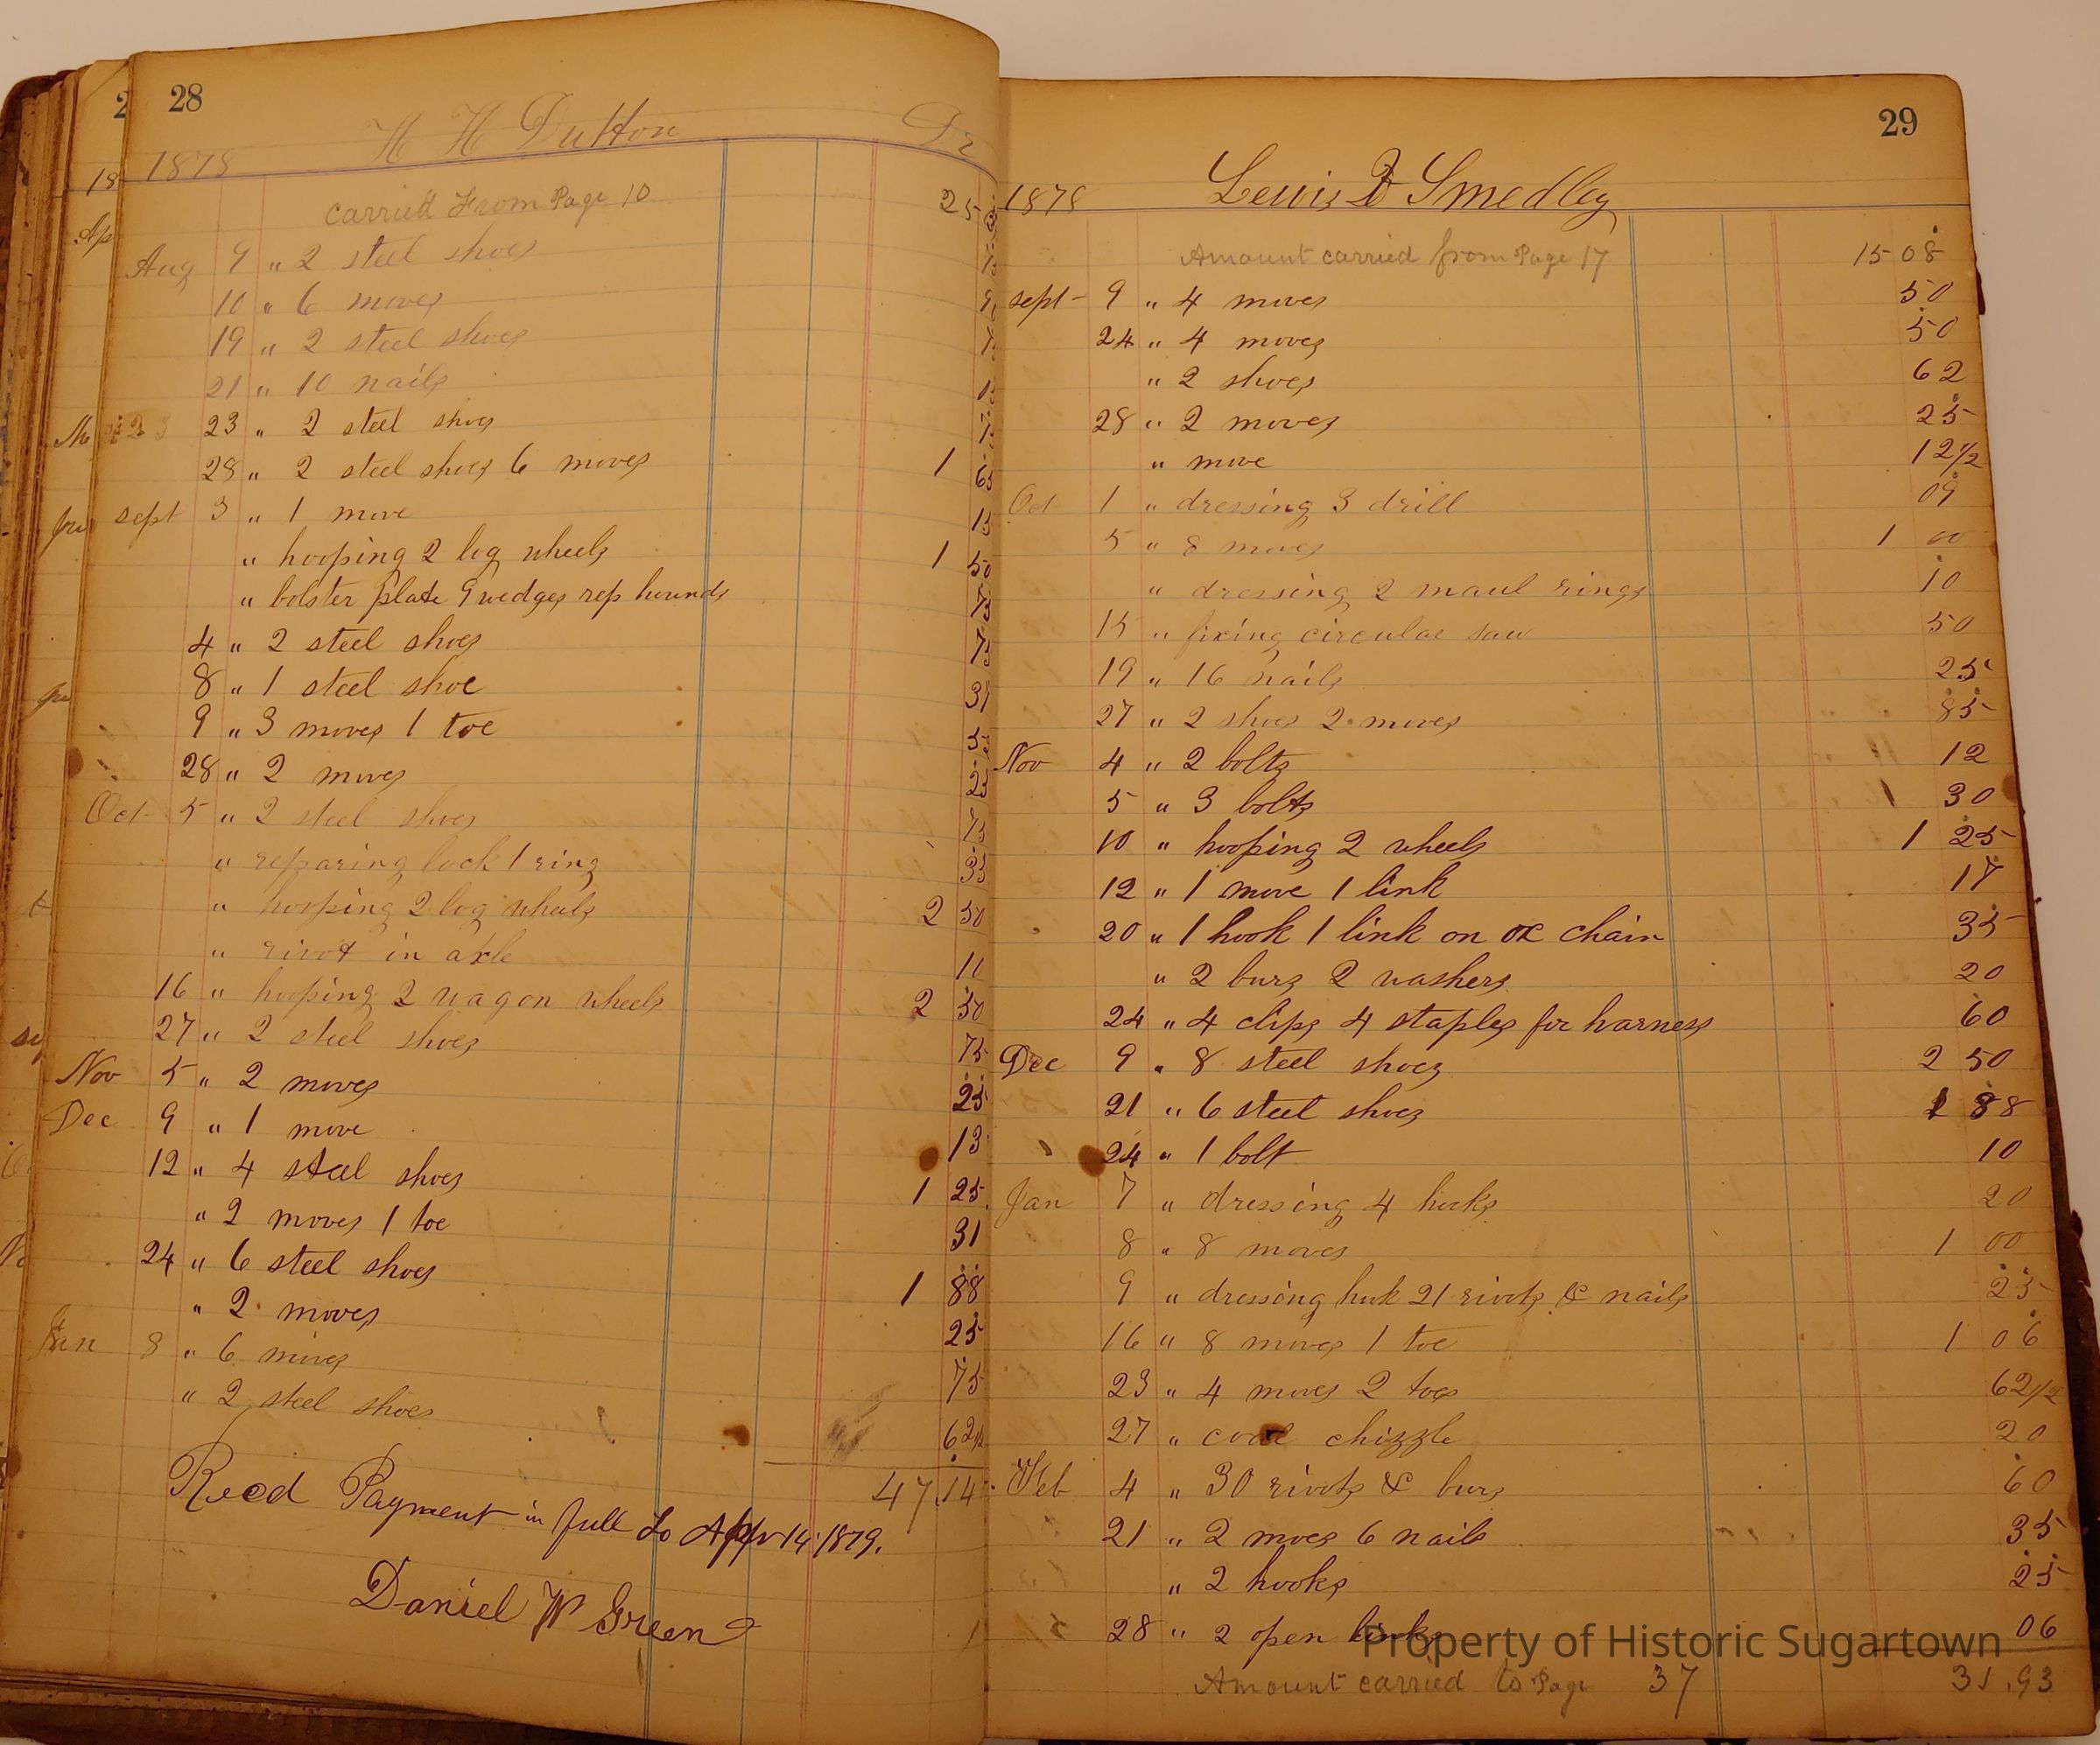 28
H H Dutton Dr
1878
carried From Page 10 25
Aug 9 " 2 steel shoes
10 " 6 moves
19 " 2 steel shoes
21 " 10 nails
23 " 2 steel shoes
28 " 2 steel shoes 6 moves 1 63
sept 3 " 1 move 13
" hooping 2 log wheels 1 50
" bolster plate 9 wedges rep hounds 75
4 " 2 steel shoes 75
8 " 1 steel shoe 31
9 " 3 moves 1 toe
28 " 2 moves 25
Oct 5 " 2 steel shoes 75
" reparing lock 1 ring 35
" hooping 2 log wheels 2 50
" rivot in axle 10
16 " hooping 2 wagon wheels 2 50
27 " 2 steel shoes 75
Nov 5 " 2 moves 25
Dec 9 " 1 move 13
12 " 4 steel shoes 1 25
" 2 moves 1 toe 31
24 " 6 steel shoes 1 88
" 2 moves 25
Jan 8 " 6 moves 75
" 2 steel shoes 62 1/2
47.14
Recd Payment in full to Apr 14 1879.
Daniel W Green
29
1878 Lewis Smedley
Amount carried from Page 17 15 08
sept 9 " 4 moves 50
24 " 4 moves 50
" 2 shoes 62
28 " 2 moves 25
" move 12 1/2
Oct 1 " dressing 3 drill 09
5 " 8 moves 1 00
" dressing 2 maul rings 10
15 " fixing circular saw 50
19 " 16 nails 25
27 " 2 shoes 2 moves 85
Nov 4 " 2 bolts 12
5 " 3 bolts 30
10 " hooping 2 wheels 1 25
12 " 1 move 1 link 17
20 " 1 hook 1 link on ox chain 35
" 2 burs 2 washers 20
24 " 4 clips 4 staples for harness 60
Dec 9 " 8 steel shoes 2 50
21 " 6 steel shoes 1 88
24 " 1 bolt 10
Jan 7 " dressing 4 hooks 20
8 " 8 moves 1 00
9 " dressing hook 21 rivots & nails 25
16 " 8 moves 1 toe 1 06
23 " 4 moves 2 toes 62 1/2
27 " coal chizzle 20
Feb 4 " 30 rivots & burs 60
21 " 2 moves 6 nails 35
" 2 hooks 25
28 " 2 open links 06
Amount carried to Page 37 31.93
Property of Historic Sugartown